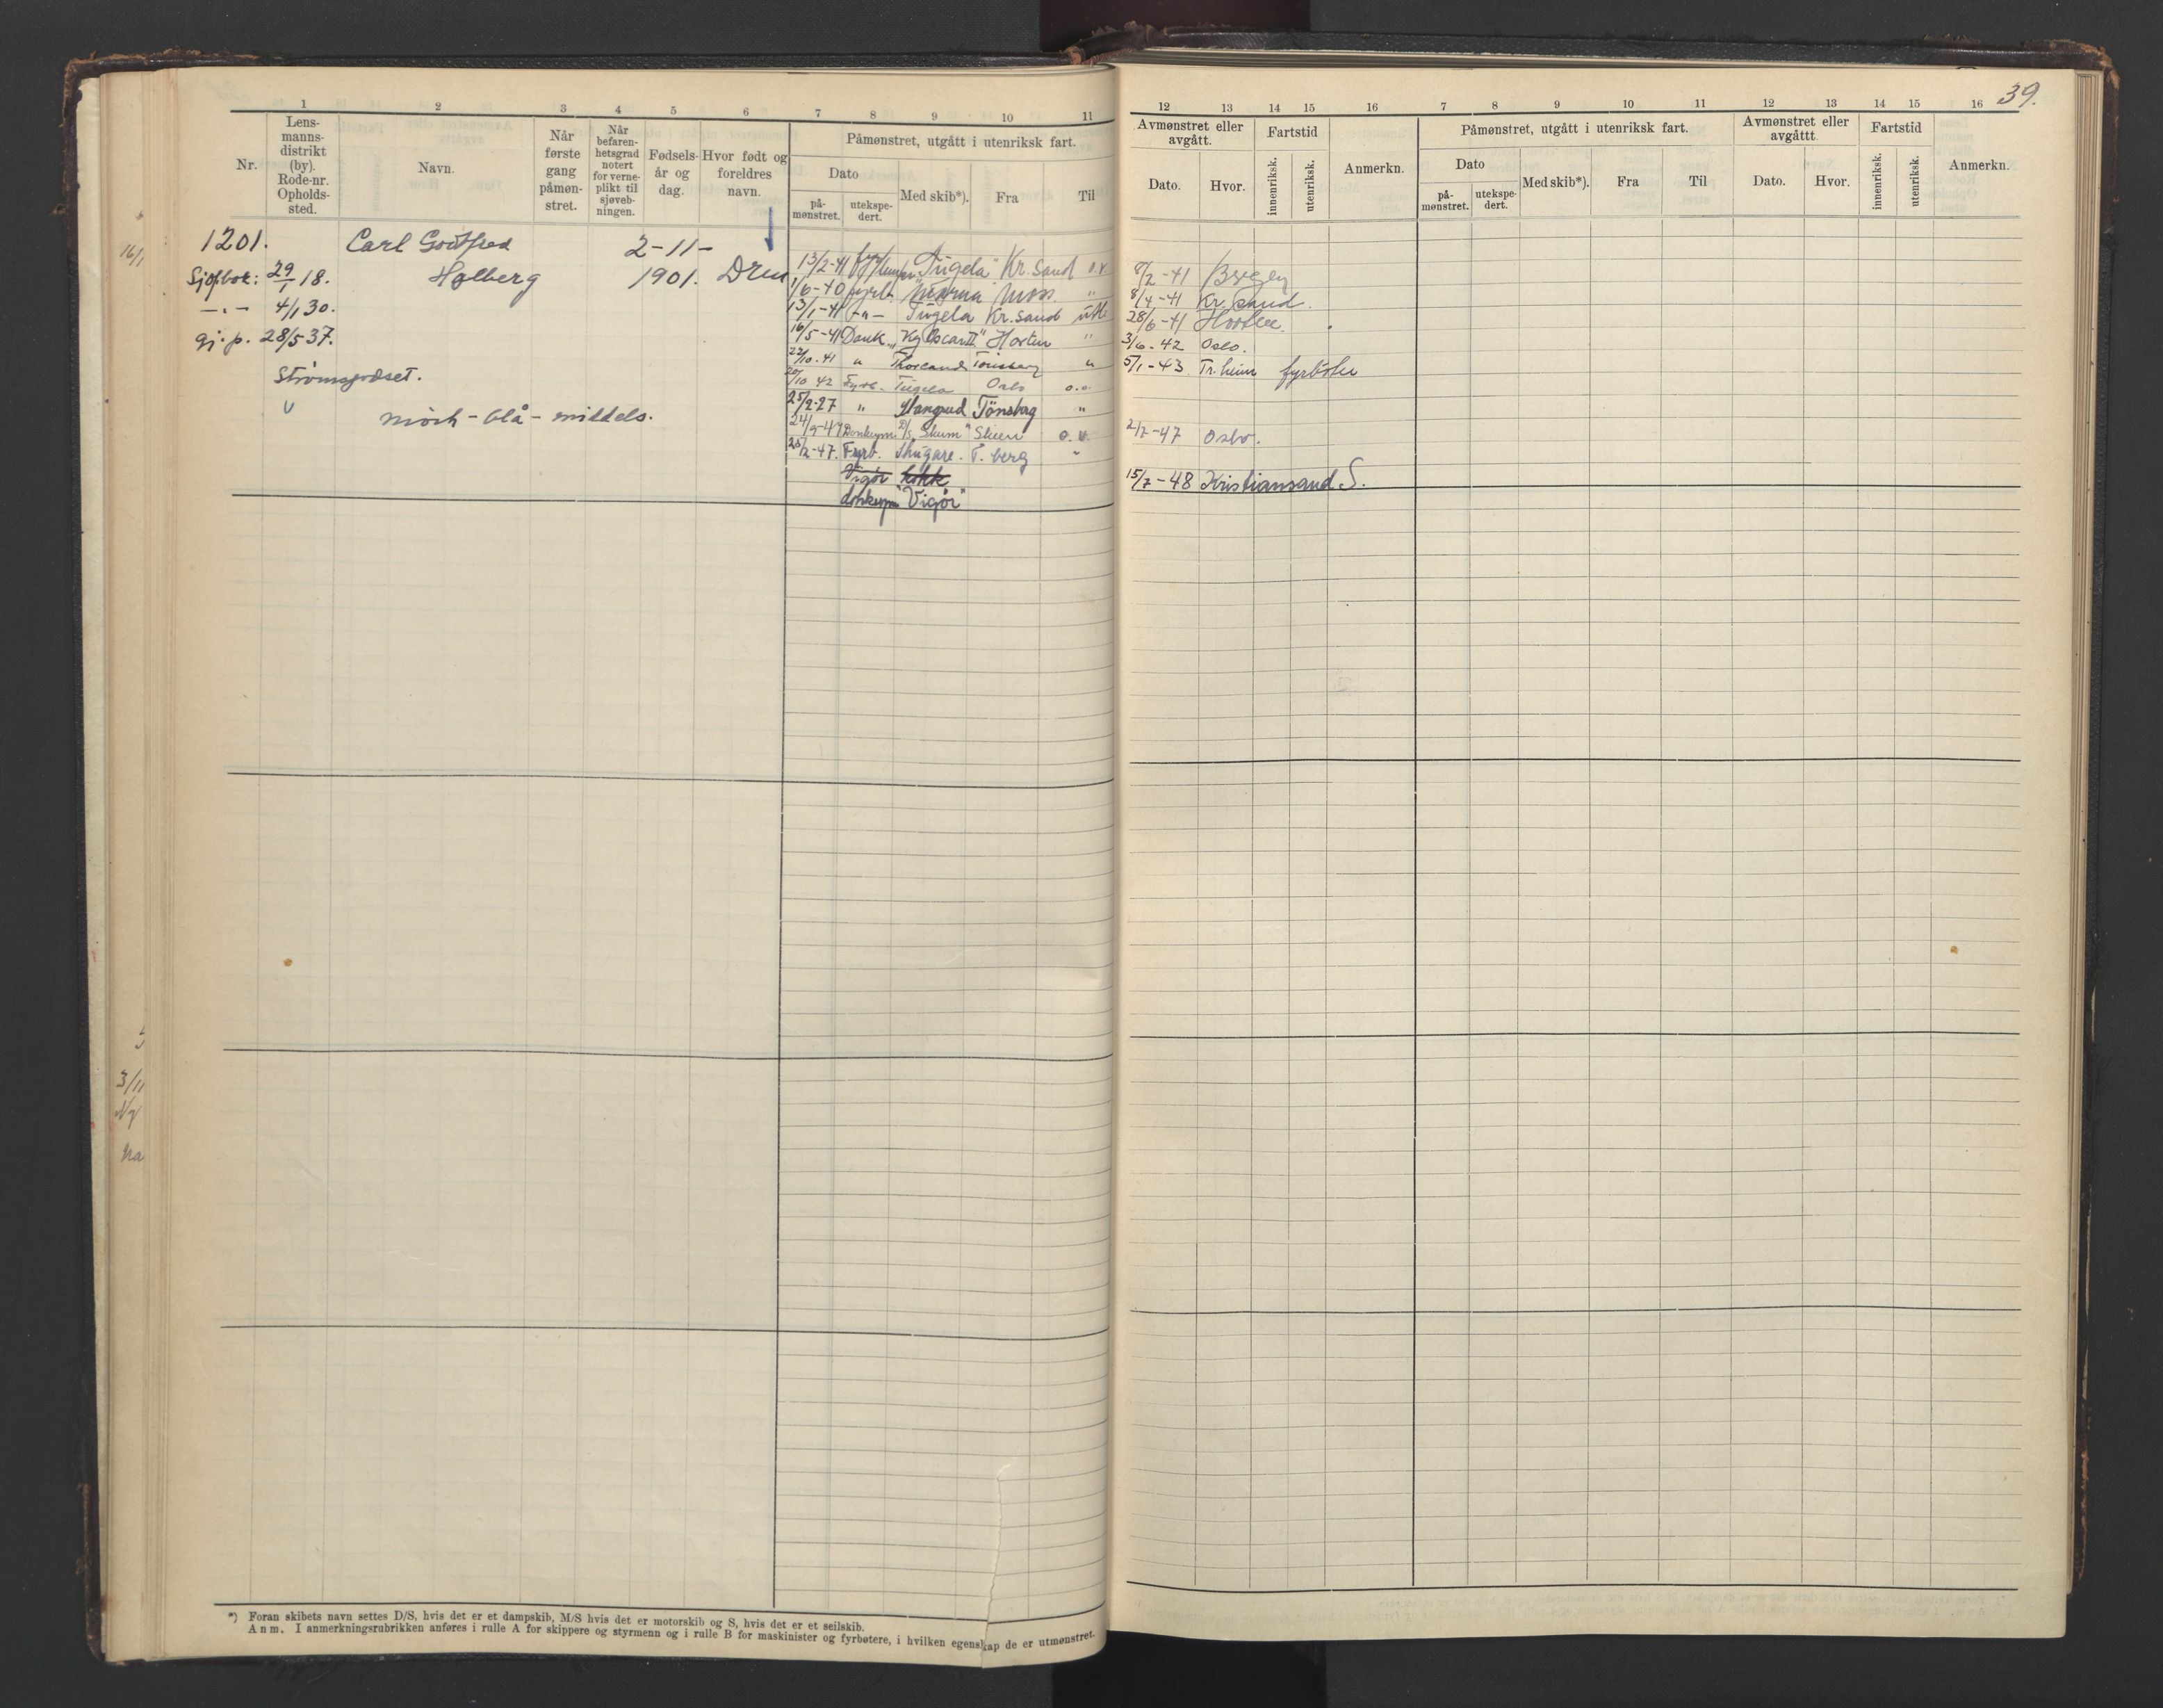 39.
1 2 3 4 5 6 7 8 9 10 11
Nr.
Lens-
manns-
distrikt
(by).
Rode-nr.
Opholds-
sted.
Navn.
Når
første
gang
påmøn-
stret.
Når
befaren-
hetsgrad
notert
for verne-
plikt til
sjøveb-
ningen.
Fødsels-
år og
dag.
Hvor født og
foreldres
navn.
Påmønstret, utgått i utenriksk fart.
Dato
på-
mønstret.
utekspe-
dert.
Med skib*).
Fra
Til
12 13 14 15 16 7 8 9 10 11 12 13 14 15 16
Avmønstret eller
avgått.
Dato.
Hvor.
Fartstid
innenriksk.
utenriksk.
Anmerkn.
Påmønstret, utgått i utenriksk fart.
Dato
på-
mønstret.
utekspe-
dert.
Med skib*).
Fra
Til
Avmønstret eller
avgåttt.
Dato.
Hvor.
Fartstid
innenriksk.
utenriksk.
Anmerkn.
1201. Carl Gottfred 2-11-
Sjøfbok: 29/1 18. Holberg 1901. Drm
-"- 4/1 30.
gj.p. 28/5 37.
Strömsgodset.
mörk - blå - middels.
13/2-41 "Tugela" Kr.sand o.v.
1/6-40 fyrb. Moss "
13/1-41 -"- Tugela Kr.sand utl.
16/5-41 Donk. "Kg Oscar II" Horten "
22/10-41 " Thorland Tönsberg "
20/10 42 Fyrb. Tugela Oslo o.o.
25/2-27 " Tönsberg "
24/9-47 Donkeym. D/S "Skum" Skien o.v.
Fyrb. T.berg "
Vigör kokk
donkeym "Vigör"
8/2-41 Bergen
8/4-41 Kr.Sand.
28/6-41 Horten.
3/6-42 Oslo.
5/1-43 Tr.heim fyrböter
2/7-47 Oslo.
15/7-48 Kristiansand S.
16/1
3/11
Ny
na
*) Foran skibets navn settes D/S, hvis det er et dampskib, M/S hvis det er motorskib og S, hvis det er et seilskib.
Anm. I anmerkningsrubrikken anføres i rulle A for skippere og styrmenn og i rulle B for maskinister og fyrbøtere, i hvilken egenskap de er utmønstret.